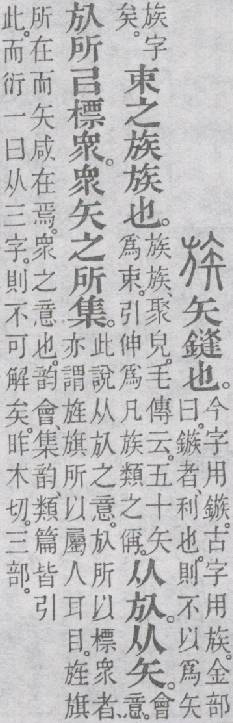 族矢鏠也。今字用鏃。古字用族。金部曰。鏃者、利也。則不以爲矢
族字矣。束之族族也。族族、聚皃。毛傳云。五十矢爲束。引伸爲凡族類之偁。从㫃。从矢。會意。
㫃所㠯標衆。衆矢之所集。此說从㫃之意。㫃所以標衆者、亦謂旌旗所以屬人耳目。旌旗
所在而矢咸在焉。衆之意也。韵會、集韵、類篇皆引此。而衍一曰从三字。則不可解矣。昨木切。三部。